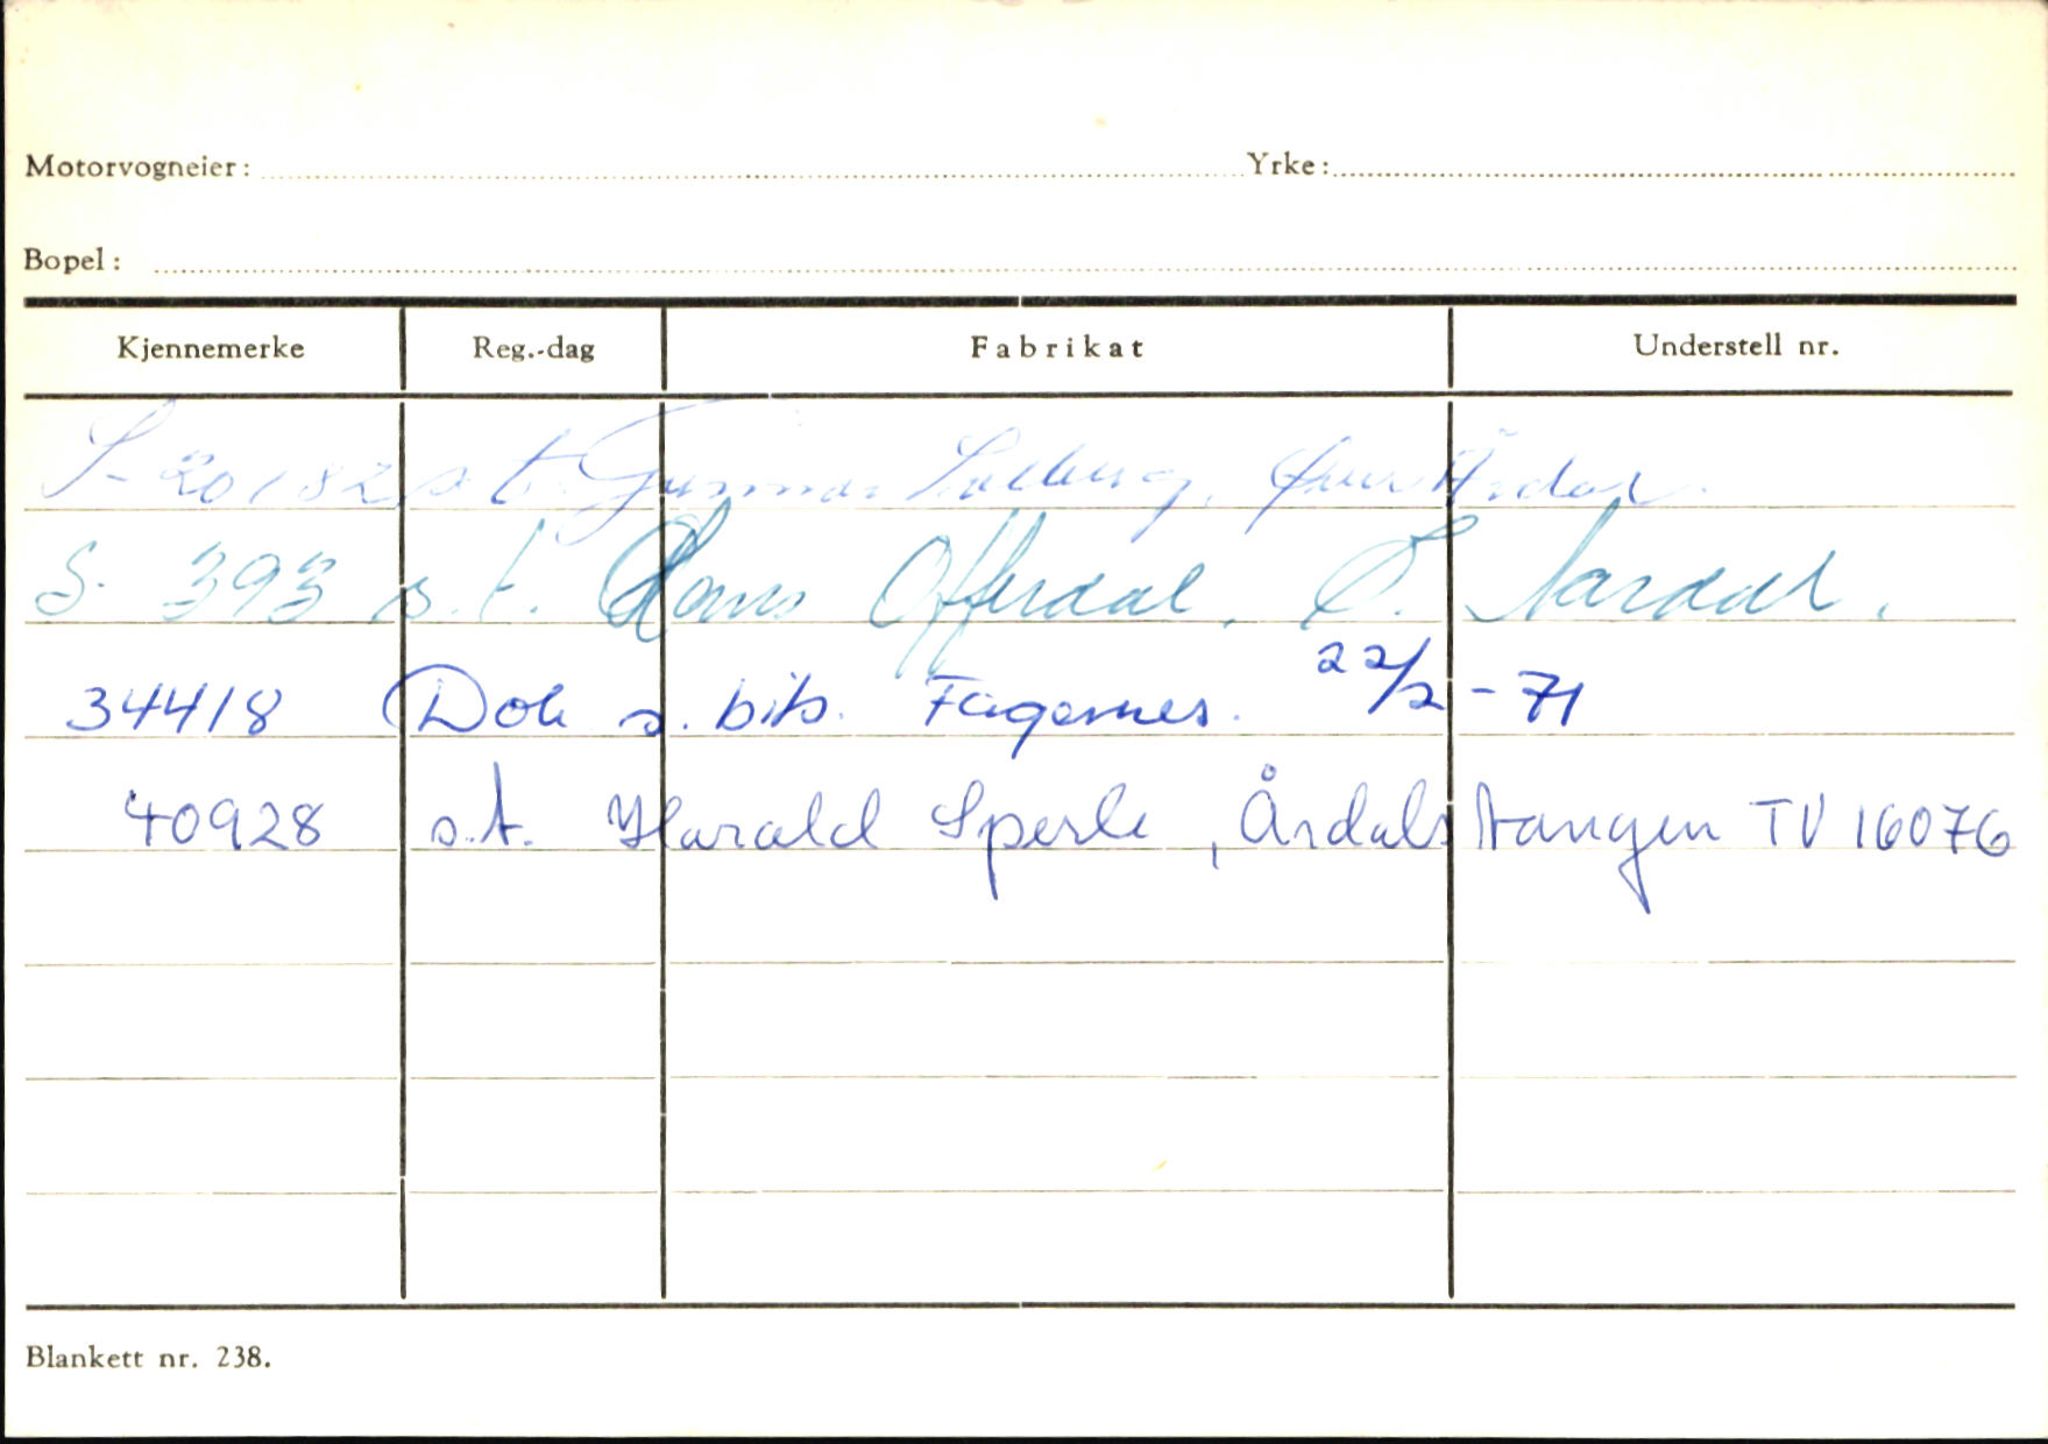 Motorvogneier: Yrke:
Bopel:
Kjennemerke Reg.-dag Fabrikat Understell nr.
S-20182 s.t. Gunnar Solberg, Øvre Årdal.
S. 393 s.t. Hans Offerdal, Ø. Aardal.
34418 Dok s. bils. Fagernes. 22/2-71
40928 s.t. Harald Sperle, Årdalstangen TV 16076
Blankett nr. 238.